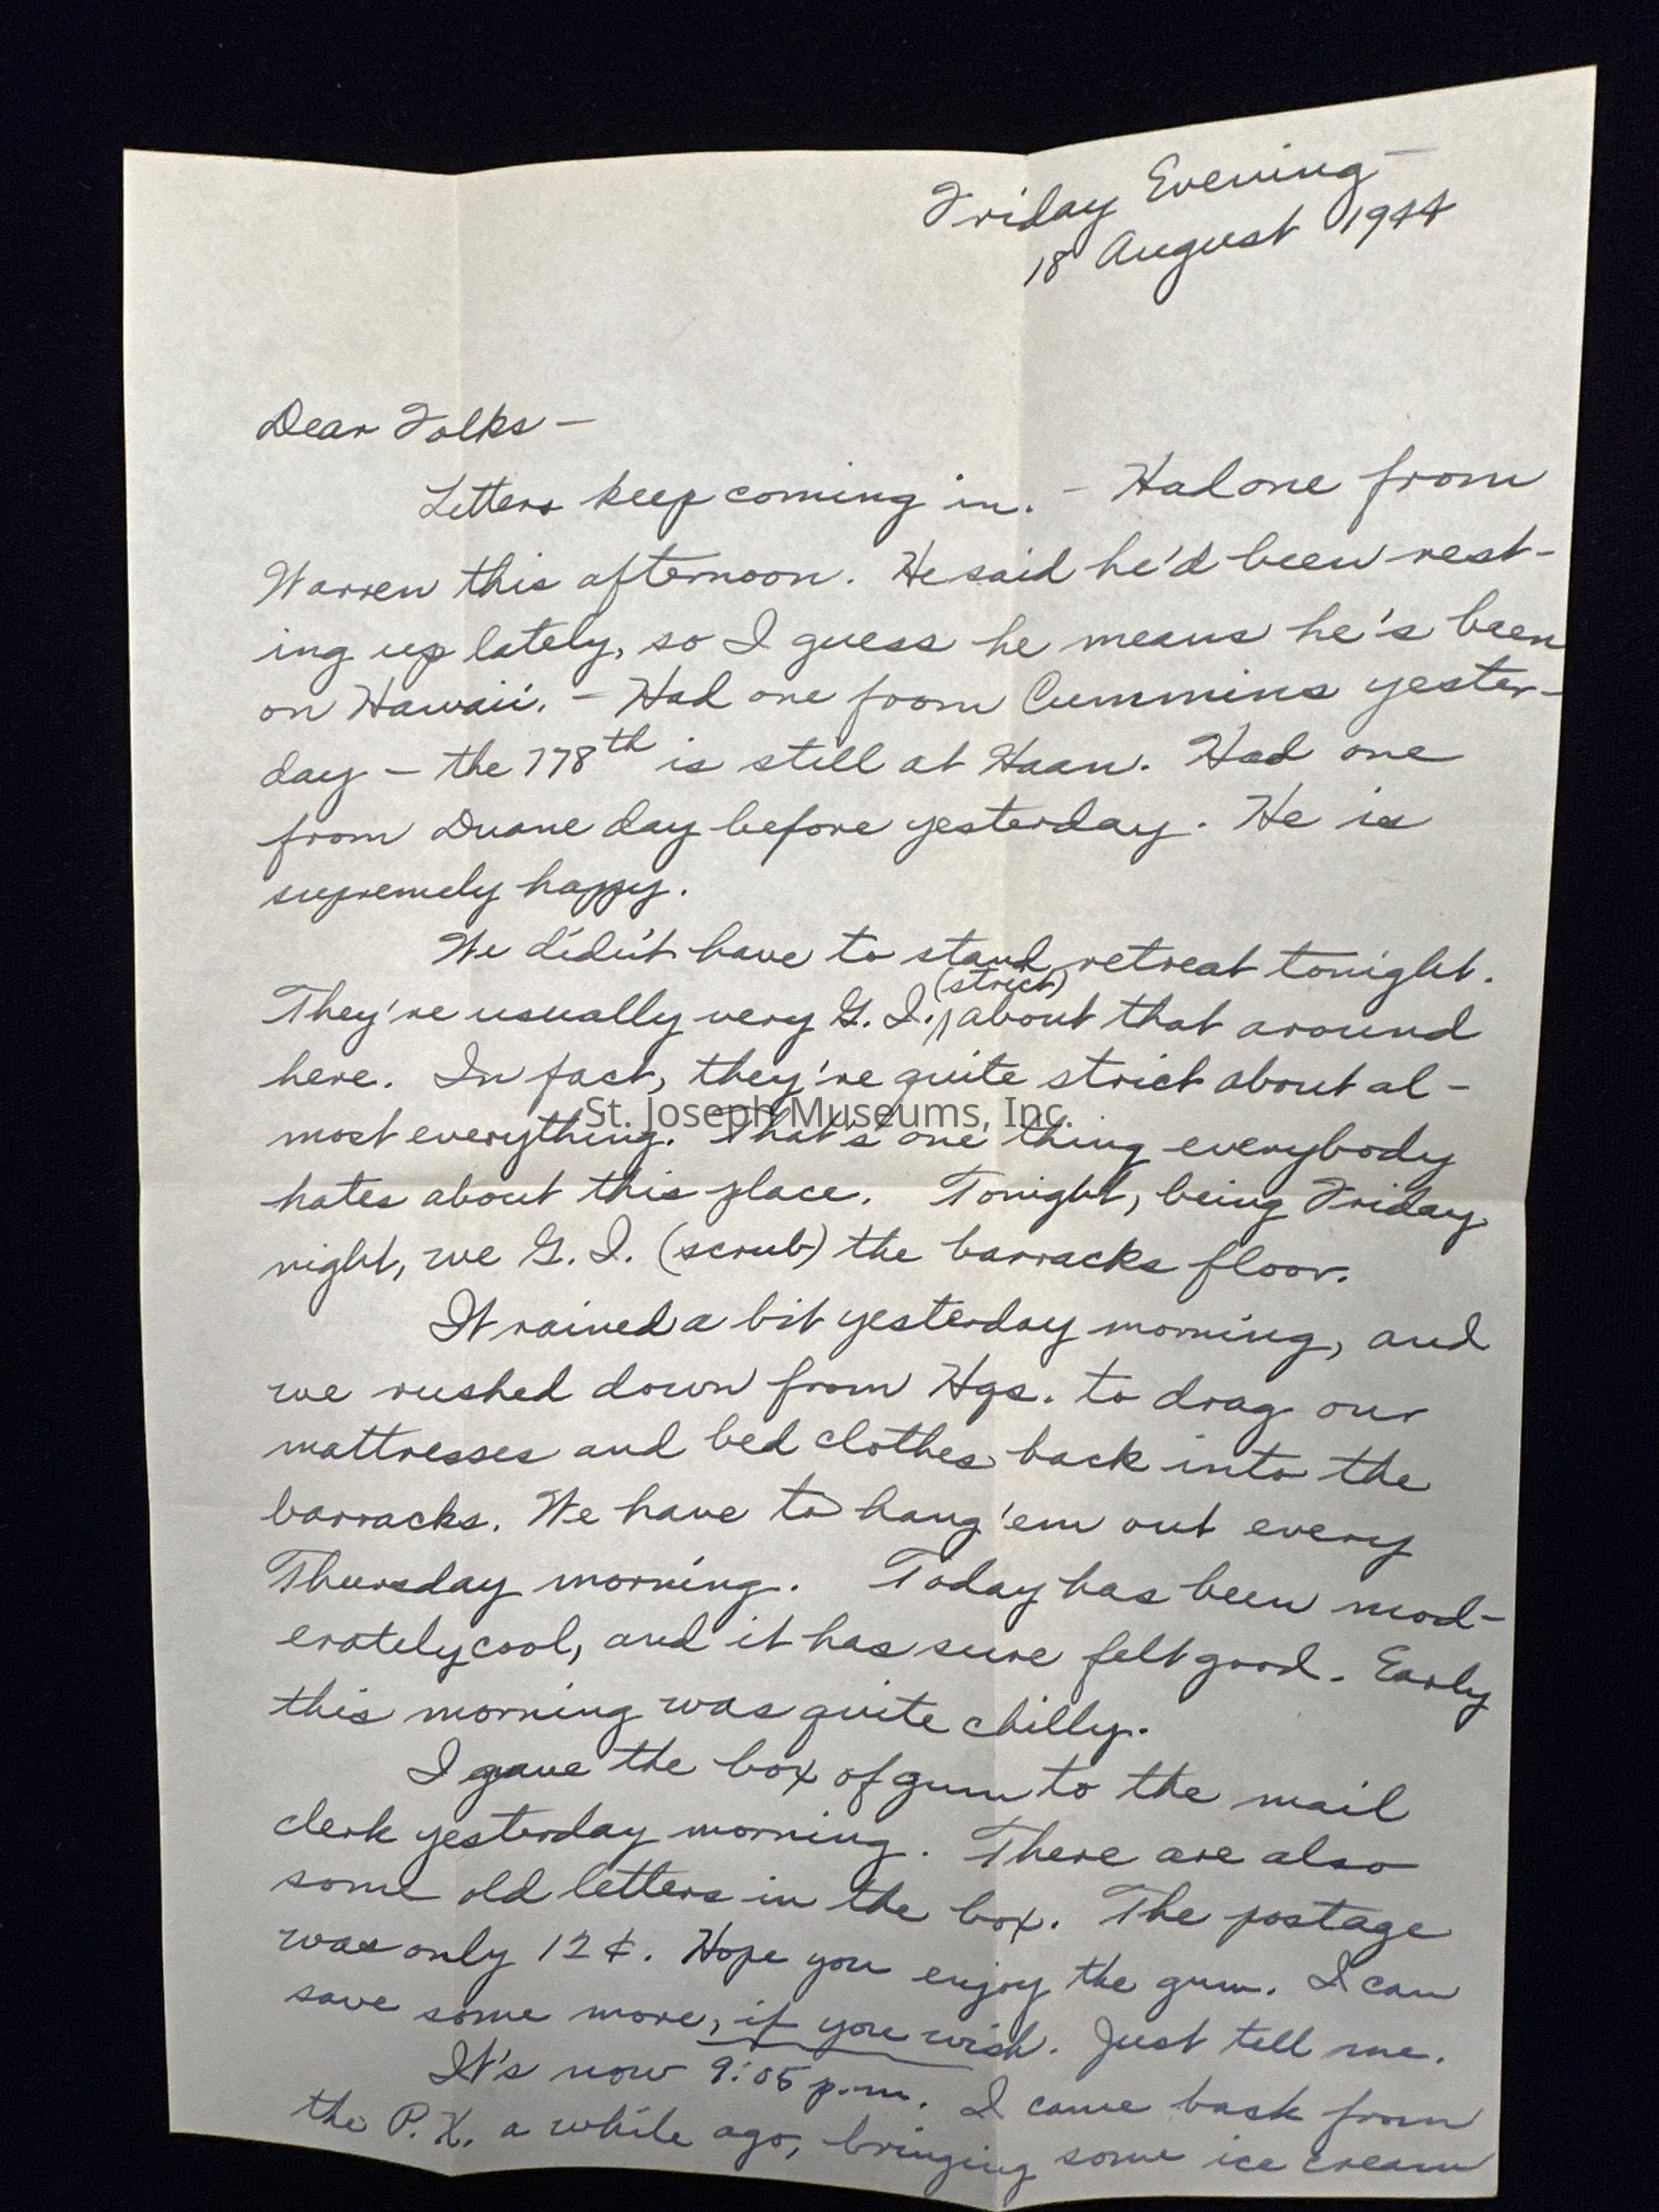 Friday Evening —
18 August 1944
Dear Folks —
Letters keep coming in. - Had one from
Warren this afternoon. He said he'd been rest-
ing up lately, so I guess he means he's been
on Hawaii. - Had one from Cummins yester-
day — the 778th is still at Haan. Had one
from Duane day before yesterday. He is
supremely happy.
We didn't have to stand retreat tonight.
(strict)
They're usually very G. I. about that around
here. In fact, they're quite strict about al-
St. Joseph Museums, Inc.
most everything. That's one thing everybody
hates about this place. Tonight, being Friday
night, we G. I. (scrub) the barracks floor.
It rained a bit yesterday morning, and
we rushed down from Hqs. to drag our
mattresses and bed clothes back into the
barracks. We have to hang 'em out every
Thursday morning. Today has been mod-
erately cool, and it has sure felt good. Early
this morning was quite chilly.
I gave the box of gum to the mail
clerk yesterday morning. There are also
some old letters in the box. The postage
was only 12¢. Hope you enjoy the gum. I can
save some more, if you wish. Just tell me.
It's now 9:05 p.m. I came back from
the P. X. a while ago, bringing some ice cream